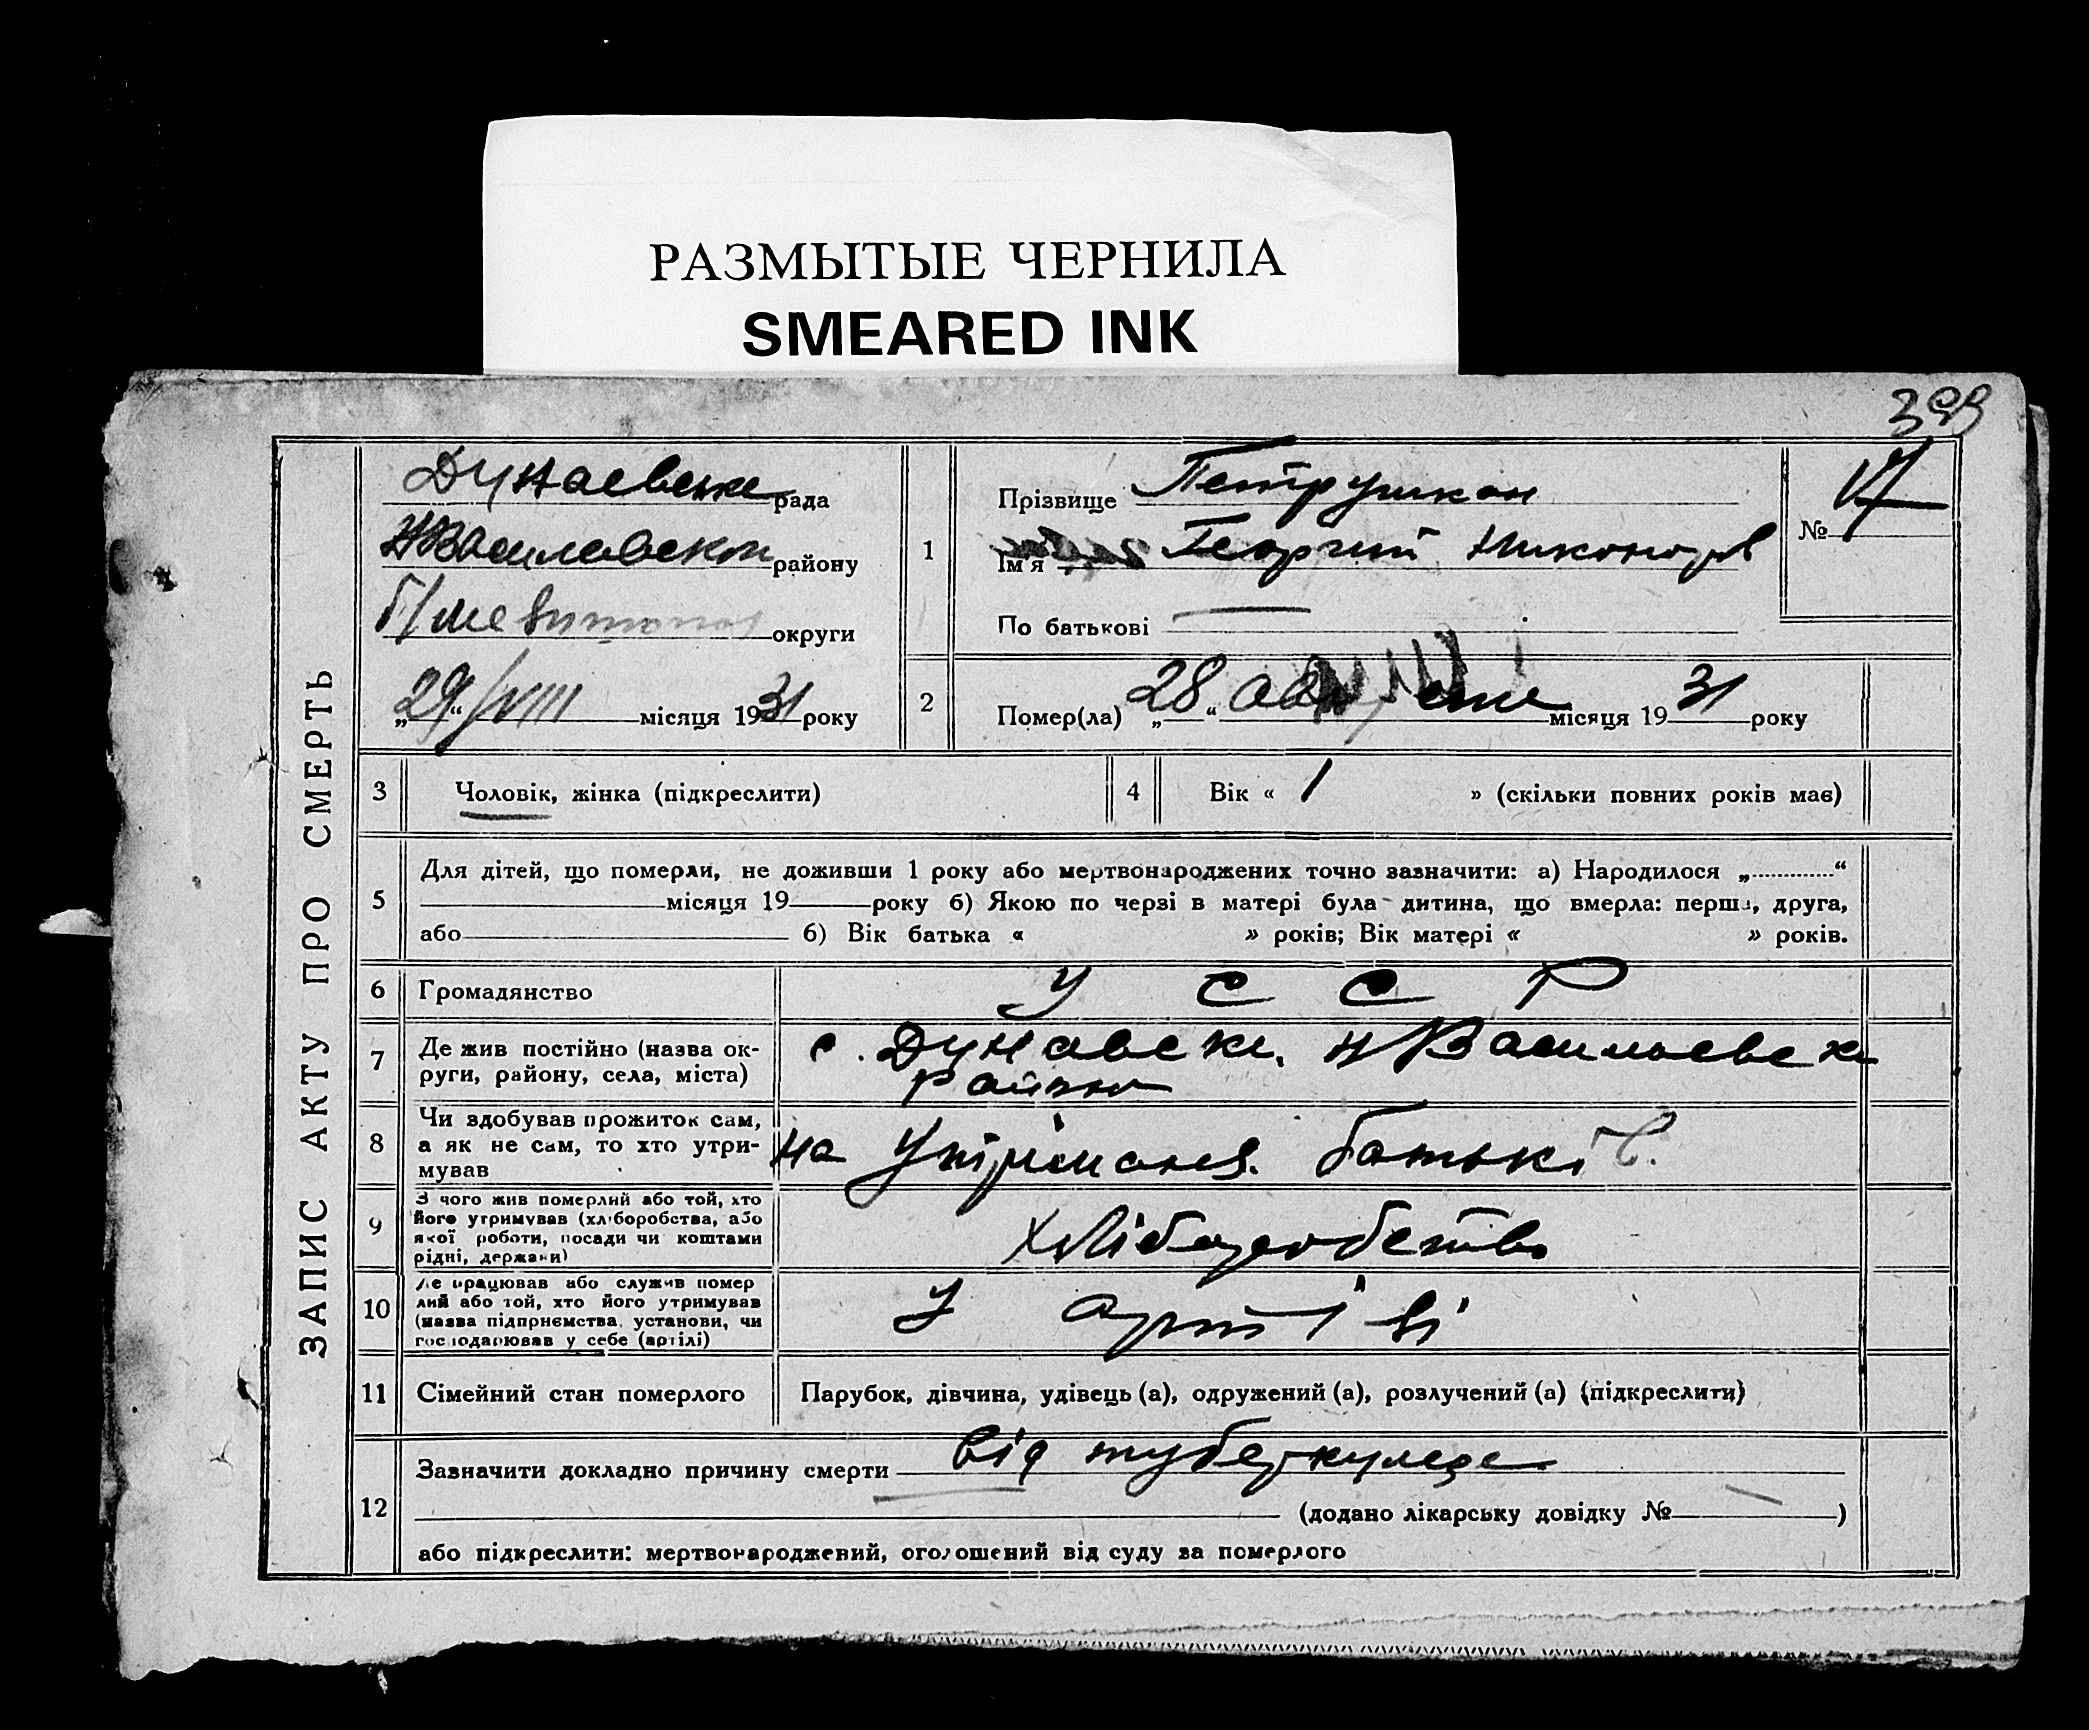 РАЗМЫТЫЕ ЧЕРНИЛА
SMEARED INK
399
ЗАПИС АКТУ ПРО СМЕРТЬ
Дунаевське рада
района
округи
„29“ /VIII місяця 1931 року
1
Прізвище Петрушкан
Ім'я Георгий
По батькові —
№
2
Помер(ла) „28“ августе місяця 1931 року
3
Чоловік, жінка (підкреслити)
4
Вік « 1 » (скільки повних років має)
5
Для дітей, що померли, не доживши 1 року або мертвонароджених точно зазначити: а) Народилося „ “
місяця 19 року б) Якою по черзі в матері була дитина, що вмерла: перша, друга,
або б) Вік батька « » років; Вік матері « » років.
6
Громадянство
У С С Р
7
Де жив постійно (назва ок-
руги, району, села, міста)
с.
району
8
Чи здобував прожиток сам,
а як не сам, то хто утри-
мував
на утріманя батьків.
9
З чого жив померлий або той, хто
його утримував (хліборобства, або
якої роботи, посади чи коштами
рідні, держави)
хліборобство
10
Де працював або служив помер
лий або той, хто його утримував
(назва підприємства, установи, чи
господарював у себе (артілі)
У артілі
11
Сімейний стан померлого
Парубок, дівчина, удівець (а), одружений (а), розлучений (а) (підкреслити)
12
Зазначити докладно причину смерти від туберкулеза
(додано лікарську довідку № — )
або підкреслити: мертвонароджений, оголошений від суду за померлого